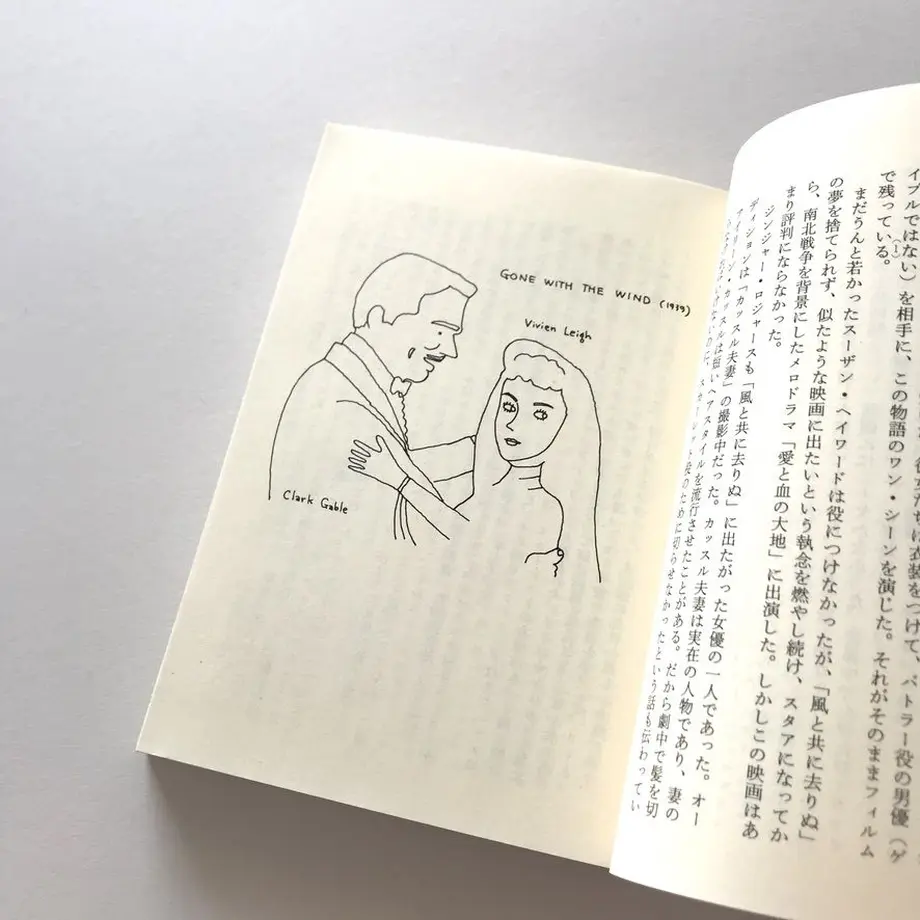 GONE WITH THE WIND (1939)
Vivien Leigh
Clark Gable
衣装をつけて、バトラー役の男優（ゲ
イブルではない）を相手に、この物語のワン・シーンを演じた。それがそのままフィルム
で残っている。(1)
まだうんと若かったスーザン・ヘイワードは役につけなかったが、「風と共に去りぬ」
の夢を捨てられず、似たような映画に出たいという執念を燃やし続け、スタアになってか
ら、南北戦争を背景にしたメロドラマ「愛と血の大地」に出演した。しかしこの映画はあ
まり評判にならなかった。
ジンジャー・ロジャースも「風と共に去りぬ」に出たがった女優の一人であった。オー
ディションは「カッスル夫妻」の撮影中だった。カッスル夫妻は実在の人物であり、妻の
アイリーン・カッスルは短いヘアスタイルを流行させたことがある。だから劇中で髪を切
らなければいけないのに、スカーレット役のために切らせなかったという話も伝わってい